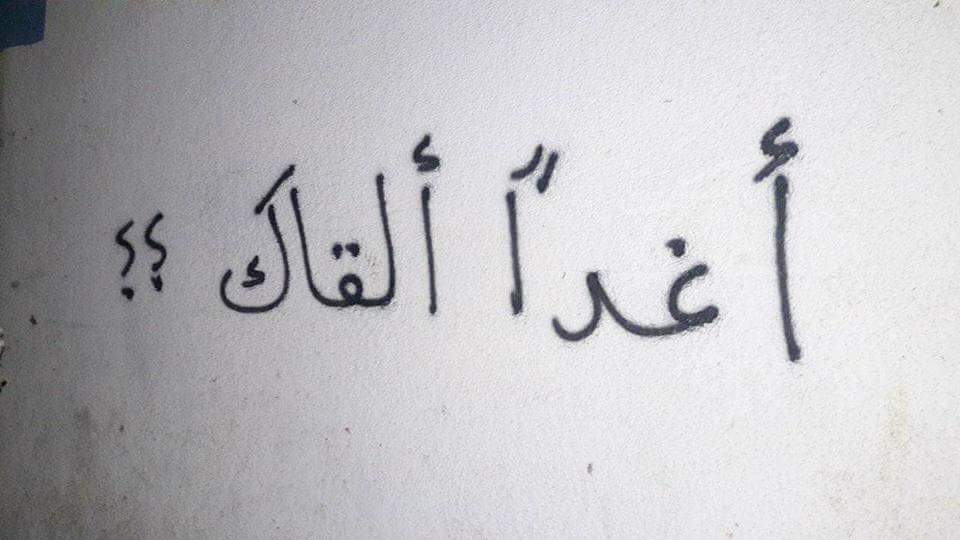 أغداً ألقاك ؟؟